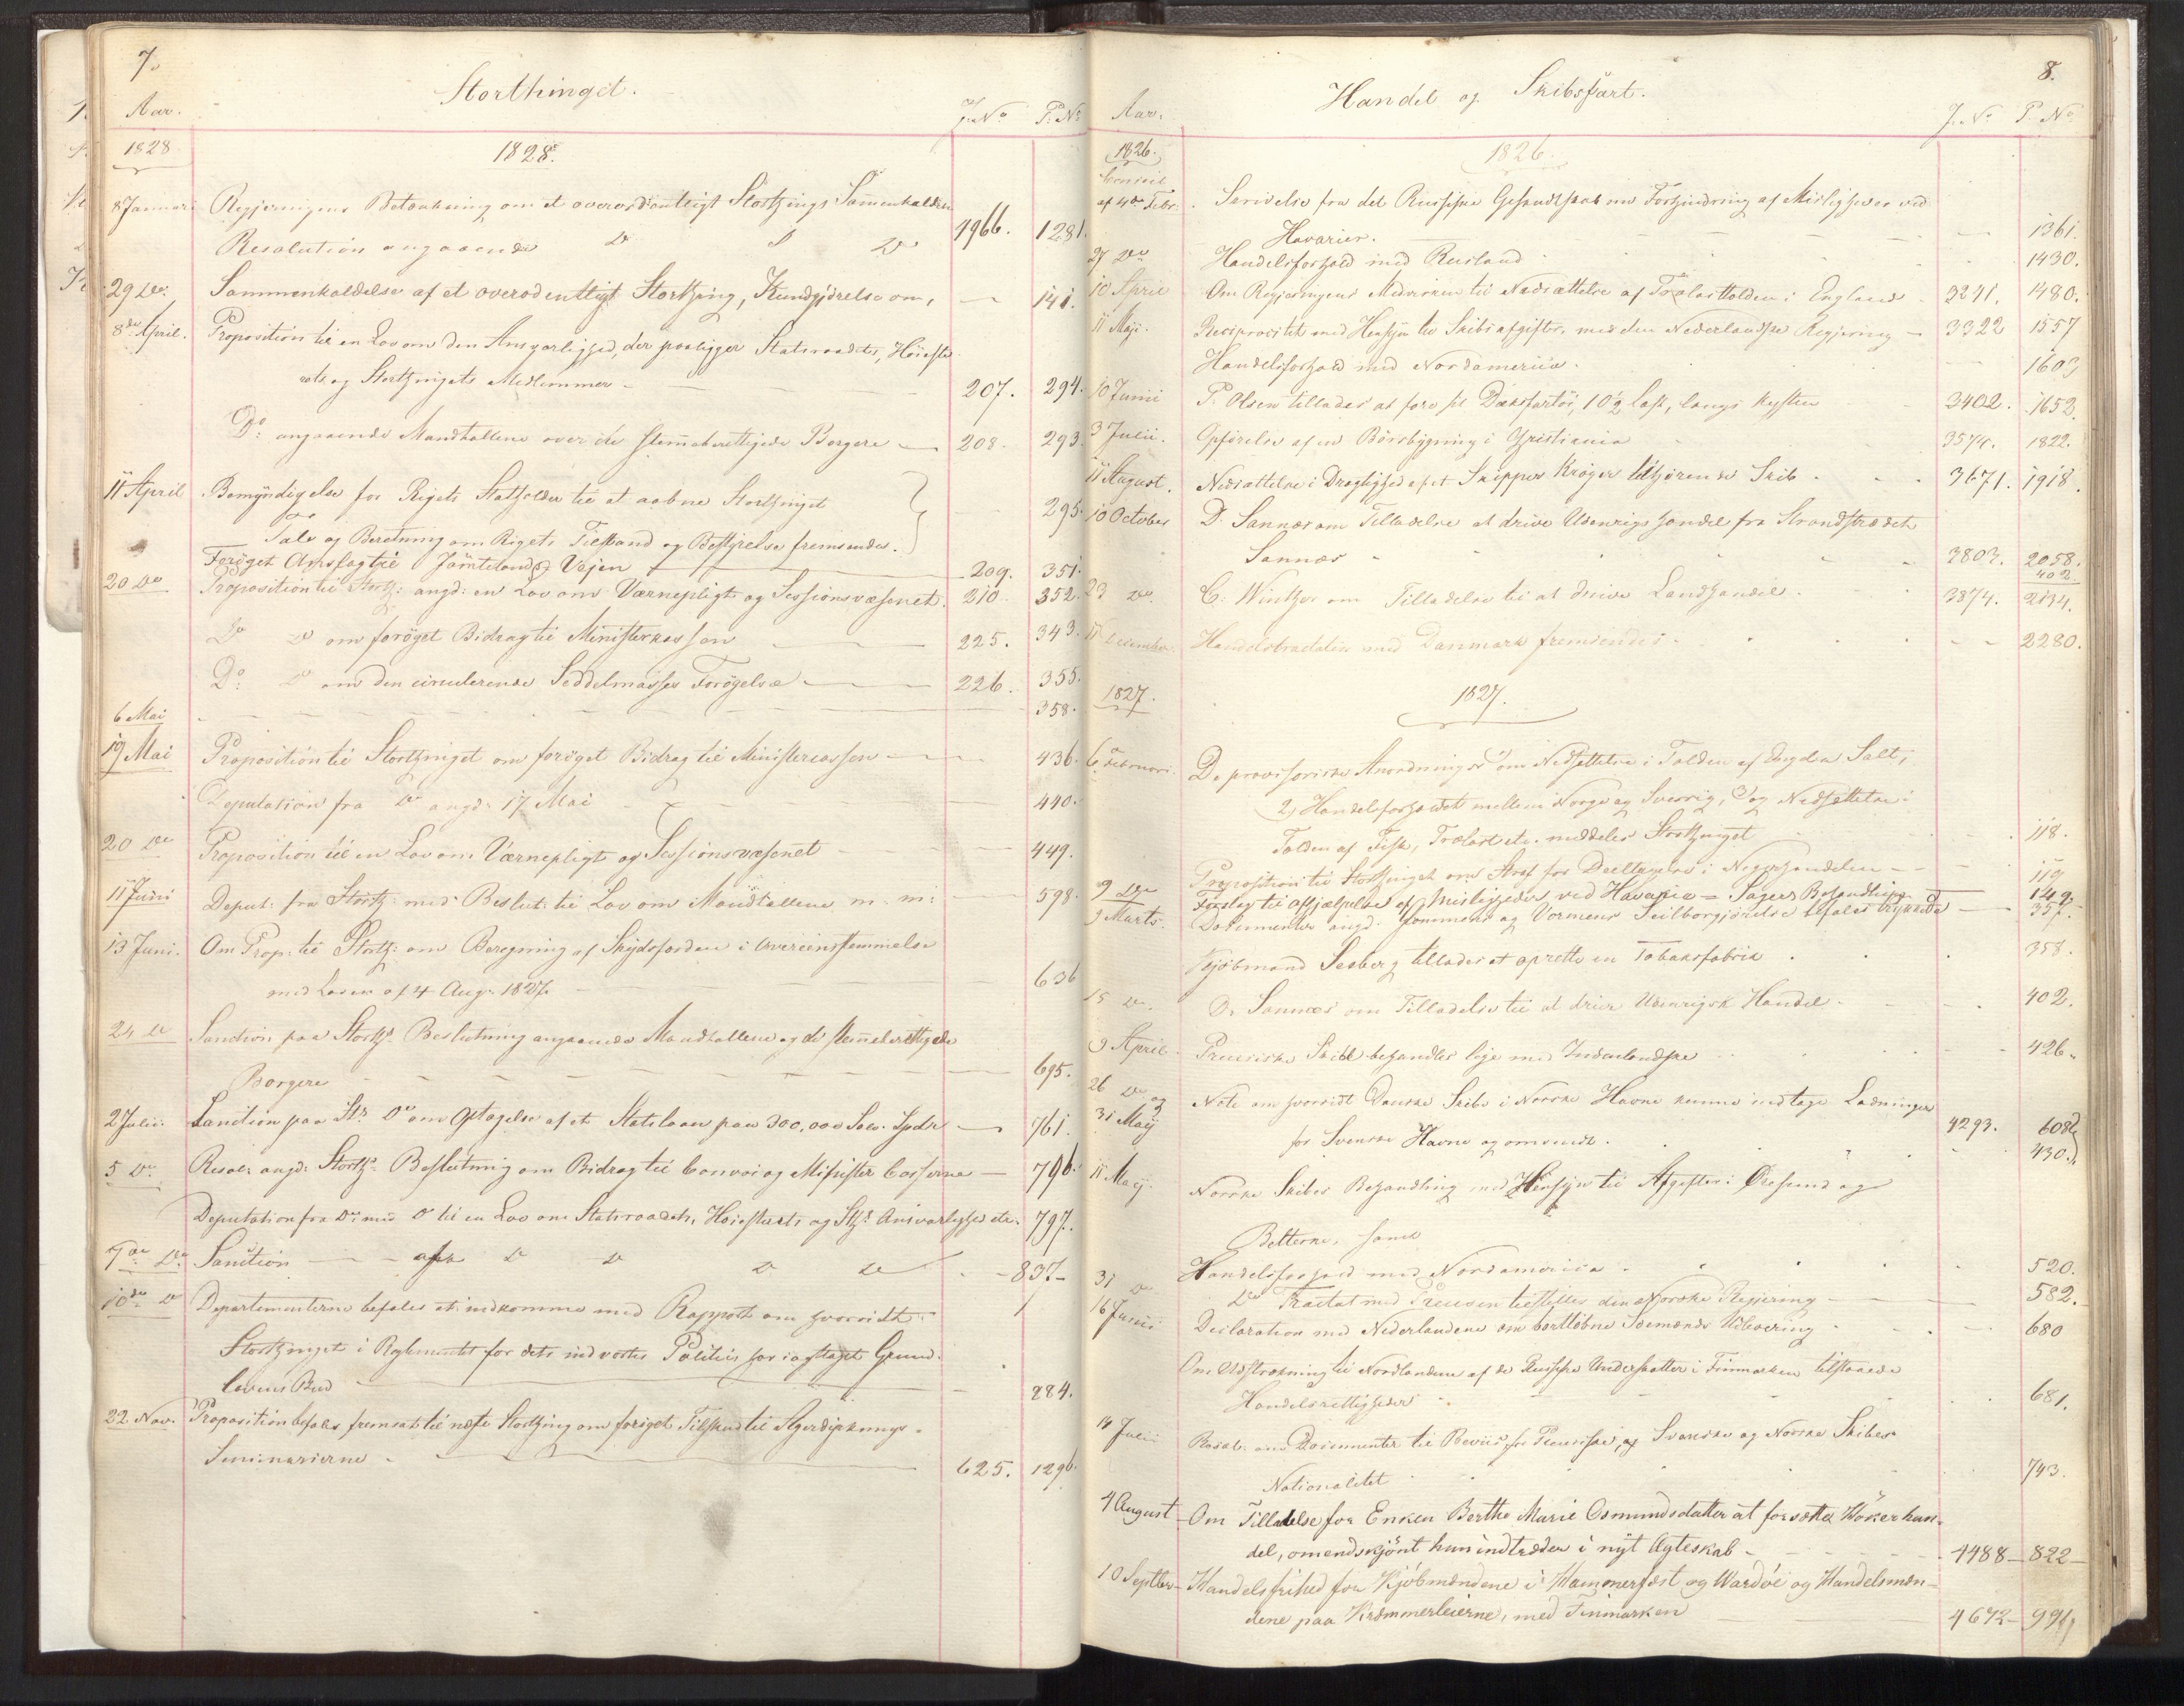 7.
Storthinget.
Aar.
J. No P. No
1828
1828.
8 Januari Regjeringens Betænkning om et overordentligt Storthings Sammenkaldelse
Resolution angaaende Do Do 1966. 1281.
29 Do. Sammenkaldelse af et overodentligt Storthing, Kundgjörelse om, 141.
8de April. Proposition til en Lov om den Ansvarlighed, der paaligger Statsraadets, Höieste
rets og Storthingets Medlemmer 207. 294.
Do angaaende Mandtallene over de stemmeberettigede Borgere 208. 293.
11 April Bemyndigelse for Rigets Statholder til at aabne Storthinget
Tale og Beretning om Rigets Tilstand og Bestyrelse fremsendes. 295.
Foröget Anslag til Jämtelands Vejen 209. 351.
20 Do Proposition til Storth: angd: en Lov om Værnepligt og Sessionsvæsenet. 210. 352.
Do Do om foröget Bidrag til Ministerkassen 225. 343.
Do: Do om den circulerende Seddelmasses Forögelse 226. 355.
6 Mai 358.
19 Mai Proposition til Storthinget om foröget Bidrag til Ministercassen 436.
Deputation fra Do angd: 17 Mai 440.
20 Do Proposition til en Lov om Værnepligt og Sessionsvæsenet 449.
11 Juni Deput: fra Storth: med Beslut: til Lov om Mandtallene m: m: 598.
13 Juni. Om Prop: til Storth: om Beregning af Skydsfærden i Overeenstemmelse
med Loven af 4 Aug: 1827. 636
24 Do Sanction paa Storth: Beslutning angaaende Mandtallene og de stemmeberettigede
Borgere 695.
2 Julii. Sanction paa St: Do om Optagelse af et Statslaan paa 300,000 Sölv Spdr 761.
5 Do. Resol: angd: Storth: Beslutning om Bidrag til Convoi og Minister Casserne 796.
Deputation fra Do: med Do til en Lov om Statsraadets, Höiesterets og Sth: Ansvarlighed etc. 797.
7de Do. Sanction Do Do Do Do 837
10de Do Departementerne befales at indkomme med Rapport om hvorvidt
Storthinget i Reglementet for dets indvortes Politie har iagttaget Grund-
lovens Bud 884.
22 Nov. Proposition befales fremsat til næste Storthing om foröget Tilskud til Agerdyrknings-
Seminarierne 625. 1296.
8.
Handel og Skibsfart.
Aar.
J. No P. No
1826.
1826.
Conseil
af 4de Febr. Skrivelse fra det Russiske Gesandtskab om Forhindring af Misligheder ved
Havarier. 1361.
27 Do Handelsforhold med Rusland 1430.
10 April Om Regjeringens Medvirken til Nedsættelse af Trælasttolden i England 3241. 1480.
11 Maji. Reciprocitet med Hensyn til Skibsafgifter, med den Nederlandske Regjering 3322 1557
Handelsforhold med Nordamerica. 1603
10 Junii P. Olsen tillades at före sit Dæksfartöi, 10½ Læst, langs Kysten 3402. 1652.
3 Julii. Opförelse af en Börsbygning i Christiania 3574. 1822.
11 August. Nedsættelse i Drægtighed af et Skipper Kröger tilhörende Skib 3671. 1918.
10 October D. Sannæs om Tilladelse at drive Udenrigs Handel fra Strandstædet
Sannæs 3803. 2058.
402
23 Do. C. Winther om Tilladelse til at drive Landhandel. 3874. 2134.
11 December. Handelstractater med Danmark fremsendes. 2280.
1827.
1827.
6 Februari. De provisoriske Anordninger 1) om Nedsættelse i Tolden af Engelsk Salt,
2) Handelsforholdet mellem Norge og Sverrig, 3) og Nedsættelse i
Tolden af Fisk, Trælast etc. meddeles Storthinget 118.
Proposition til Storthinget om Straf for Deeltagere i Negerhandelen 119
9 Do Forslag til afhjælpelse af Misligheder ved Havarie-Sagers Behandling 149.
9 Marts. Documenter angd: Glommens og Vormens Seilbargjörelse befales trykkede 357.
Kjöbmand Seeberg tillades at oprette en Tobaksfabrik 358.
15 Do. D. Sannæs om Tilladelse til at drive Udenrigsk Handel 402.
9 April. Preusiske Skibe behandles lige med Indenlandske 426.
26 Do og
31 Maij Note om hvorvidt Danske Skibe i Norske Havne kunne indtage Ladninger
for Svenske Havne og omvendt. 4293. 608
430.
11 Maij. Norske Skibes Behandling med Hensyn til Afgifter i Öresund og
Belterne, samt
Handelsforhold med Nordamerica 520.
31 Do Do Tractat med Preusen tilstilles den Norske Regjering 582.
16 Junii Declaration med Nederlandene om bortlöbne Söemænds Udlevering 680
Om Udstrækning til Nordlandene af de Russiske Undersaatter i Finmarken tilstaaede
Handelsrettigheder 681.
14 Julii Resol: om Documenter til Beviis for Preusiske, og Svenske og Norske Skibes
Nationalitet 743.
4 August Om Tilladelse for Enken Berthe Marie Osmundsdatter at forsætte Hökerhan-
del, omendskjönt hun indtræder i nyt Ægteskab 4488 822
10 Septber Handelsfrihed for Kjöbmændene i Hammerfest og Wardöe og Handelsmæn-
dene paa Kræmmerleierne, med Finmarken 4672 991